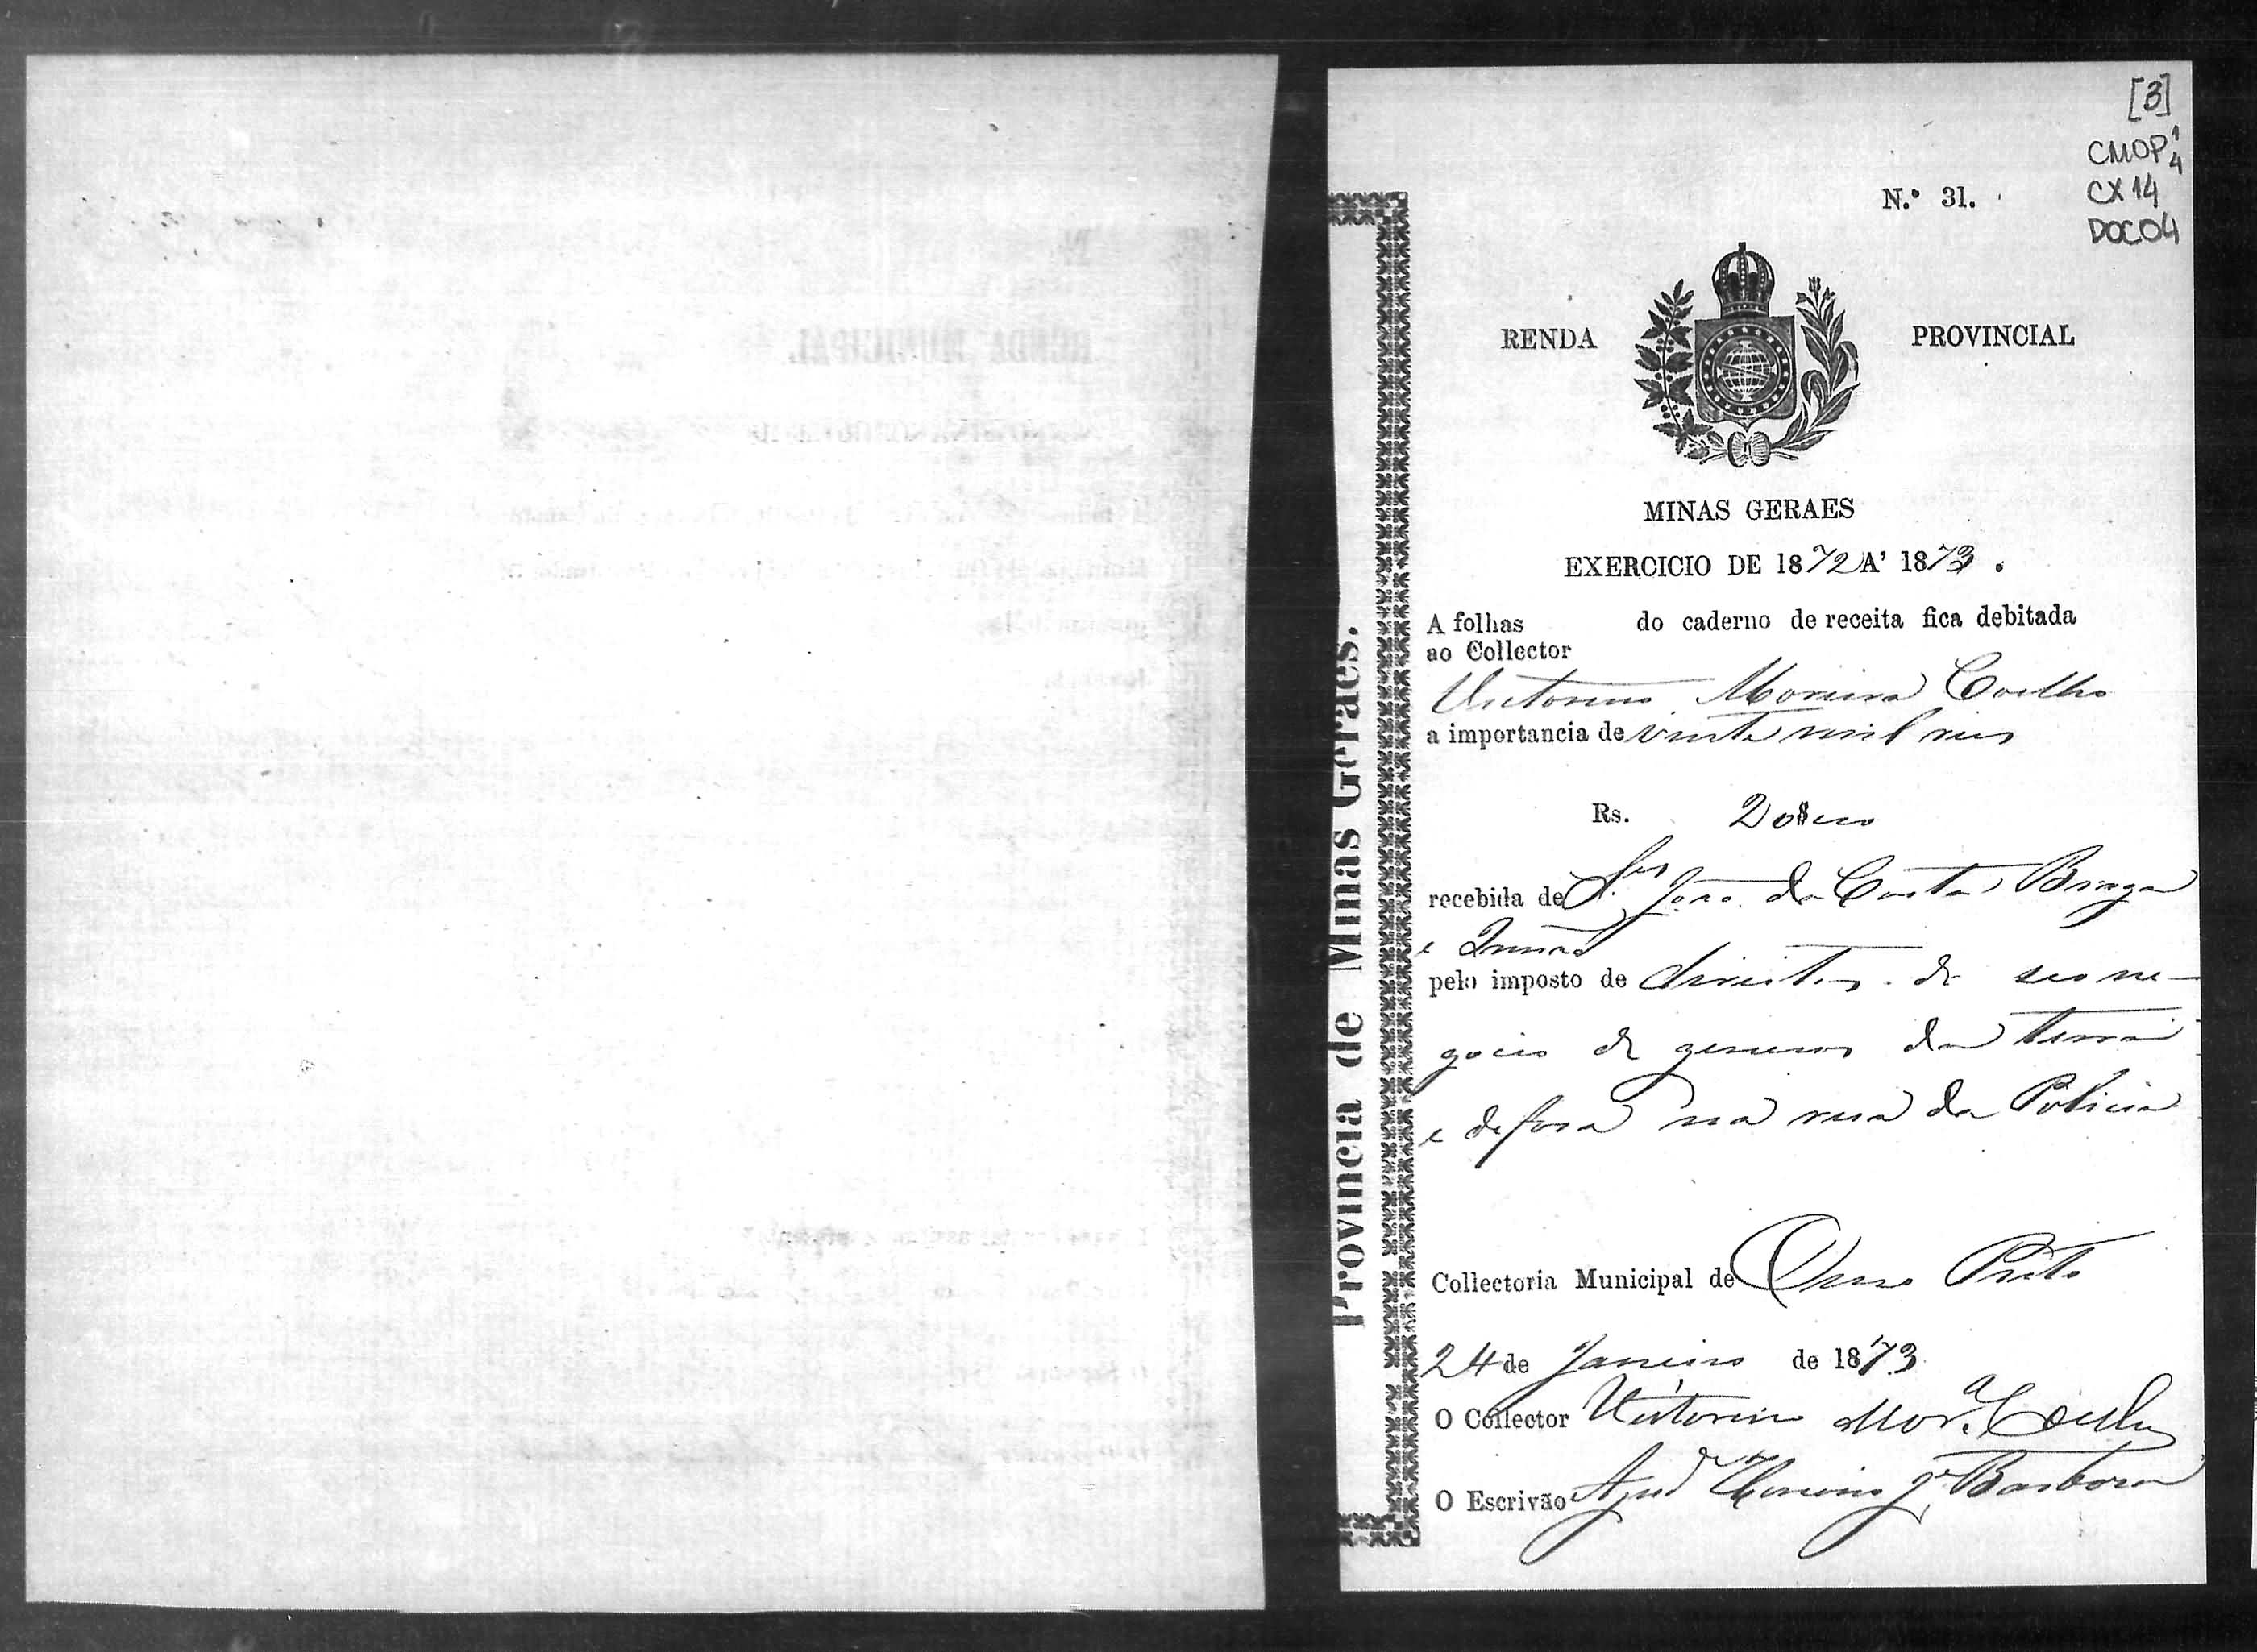 [3]
CMOP 1/4
CX 14
DOC 04
N.º 31.
RENDA PROVINCIAL
MINAS GERAES
EXERCICIO DE 1872 A' 1873.
A folhas do caderno de receita fica debitada
ao Collector
Victorino Moreira Coelho
a importancia de vinte mil reis
Rs. 20$000
recebida de Snres João da Costa Braga
e Irmão
pelo imposto de direitos de seo ne-
gocio de generos da terra
e de fora na rua da Policia
Collectoria Municipal de Ouro Preto
24 de Janeiro de 1873
O Collector Victorino Mor.a Coelho
O Escrivão Ajud J.e Barbosa
Provincia de Minas Geraes.
RENDA MUNICIPAL